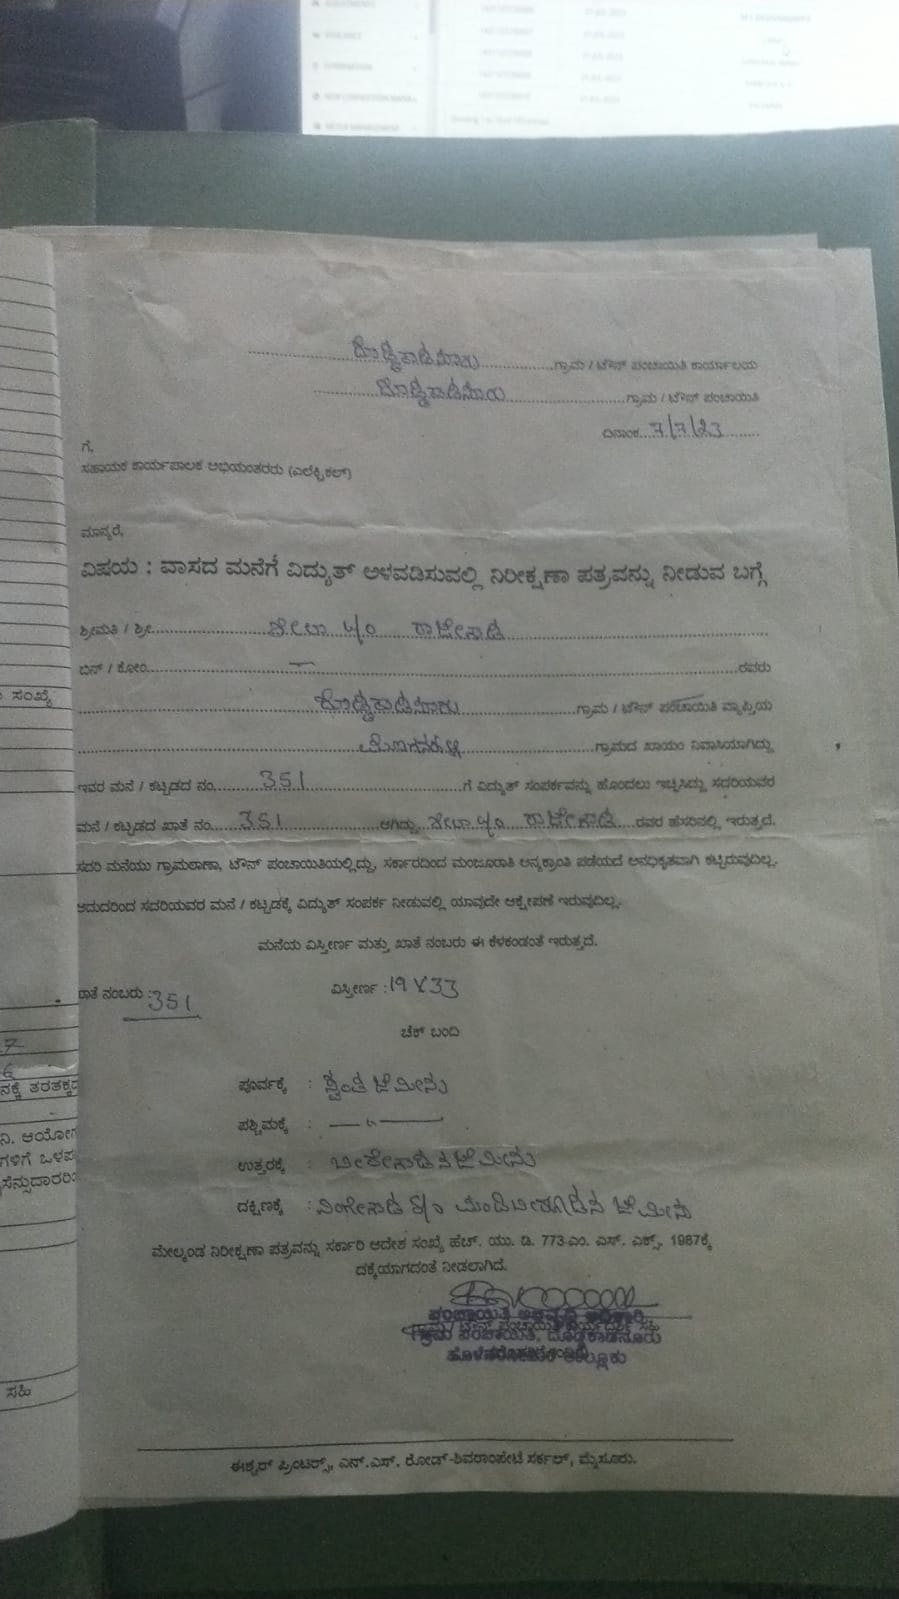 ದೊಡ್ಡಕಾಡನೂರು ಗ್ರಾಮ / ಟೌನ್ ಪಂಚಾಯಿತಿ ಕಾರ್ಯಾಲಯ
ದೊಡ್ಡಕಾಡನೂರು ಗ್ರಾಮ / ಟೌನ್ ಪಂಚಾಯಿತಿ
ದಿನಾಂಕ 7/7/23
ಗೆ,
ಸಹಾಯಕ ಕಾರ್ಯಪಾಲಕ ಅಭಿಯಂತರರು (ಎಲೆಕ್ಟ್ರಿಕಲ್)
ಮಾನ್ಯರೆ,
ವಿಷಯ : ವಾಸದ ಮನೆಗೆ ವಿದ್ಯುತ್ ಅಳವಡಿಸುವಲ್ಲಿ ನಿರೀಕ್ಷಣಾ ಪತ್ರವನ್ನು ನೀಡುವ ಬಗ್ಗೆ
ಶ್ರೀಮತಿ / ಶ್ರೀ
ಬಿನ್ / ಕೋಂ ರವರು
ದೊಡ್ಡಕಾಡನೂರು ಗ್ರಾಮ / ಟೌನ್ ಪಂಚಾಯಿತಿ ವ್ಯಾಪ್ತಿಯ
ಗ್ರಾಮದ ಖಾಯಂ ನಿವಾಸಿಯಾಗಿದ್ದು
ಇವರ ಮನೆ / ಕಟ್ಟಡದ ನಂ. 351 ಗೆ ವಿದ್ಯುತ್ ಸಂಪರ್ಕವನ್ನು ಹೊಂದಲು ಇಚ್ಛಿಸಿದ್ದು ಸದರಿಯವರ
ಮನೆ / ಕಟ್ಟಡದ ಖಾತೆ ನಂ. 351 ಆಗಿದ್ದು, ರವರ ಹೆಸರಿನಲ್ಲಿ ಇರುತ್ತದೆ.
ಸದರಿ ಮನೆಯು ಗ್ರಾಮಠಾಣಾ, ಟೌನ್ ಪಂಚಾಯಿತಿಯಲ್ಲಿದ್ದು, ಸರ್ಕಾರದಿಂದ ಮಂಜೂರಾತಿ ಅನ್ಯಕ್ರಾಂತಿ ಪಡೆಯದೆ ಅನಧಿಕೃತವಾಗಿ ಕಟ್ಟಿರುವುದಿಲ್ಲ.
ಆದುದರಿಂದ ಸದರಿಯವರ ಮನೆ / ಕಟ್ಟಡಕ್ಕೆ ವಿದ್ಯುತ್ ಸಂಪರ್ಕ ನೀಡುವಲ್ಲಿ ಯಾವುದೇ ಆಕ್ಷೇಪಣೆ ಇರುವುದಿಲ್ಲ.
ಮನೆಯ ವಿಸ್ತೀರ್ಣ ಮತ್ತು ಖಾತೆ ನಂಬರು ಈ ಕೆಳಕಂಡಂತೆ ಇರುತ್ತದೆ.
ಖಾತೆ ನಂಬರು : 351 ವಿಸ್ತೀರ್ಣ : 19 X 33
ಚೆಕ್ ಬಂದಿ
ಪೂರ್ವಕ್ಕೆ : ಸ್ವಂತ ಜಮೀನು
ಪಶ್ಚಿಮಕ್ಕೆ : — " —
ಉತ್ತರಕ್ಕೆ : ಜಮೀನು
ದಕ್ಷಿಣಕ್ಕೆ : ಜಮೀನು
ಮೇಲ್ಕಂಡ ನಿರೀಕ್ಷಣಾ ಪತ್ರವನ್ನು ಸರ್ಕಾರಿ ಆದೇಶ ಸಂಖ್ಯೆ ಹೆಚ್. ಯು. ಡಿ. 773-ಎಂ. ಎಸ್. ಎಕ್ಸ್. 1987ಕ್ಕೆ
ದಕ್ಕೆಯಾಗದಂತೆ ನೀಡಲಾಗಿದೆ.
ಪಂಚಾಯಿತಿ ಅಭಿವೃದ್ಧಿ ಅಧಿಕಾರಿ
ಗ್ರಾಮ ಪಂಚಾಯಿತಿ, ದೊಡ್ಡಕಾಡನೂರು
ಹೊಳೆನರಸೀಪುರ ತಾಲ್ಲೂಕು
ಈಶ್ವರ್ ಪ್ರಿಂಟರ್ಸ್, ಎನ್.ಎಸ್. ರೋಡ್-ಶಿವರಾಂಪೇಟೆ ಸರ್ಕಲ್, ಮೈಸೂರು.